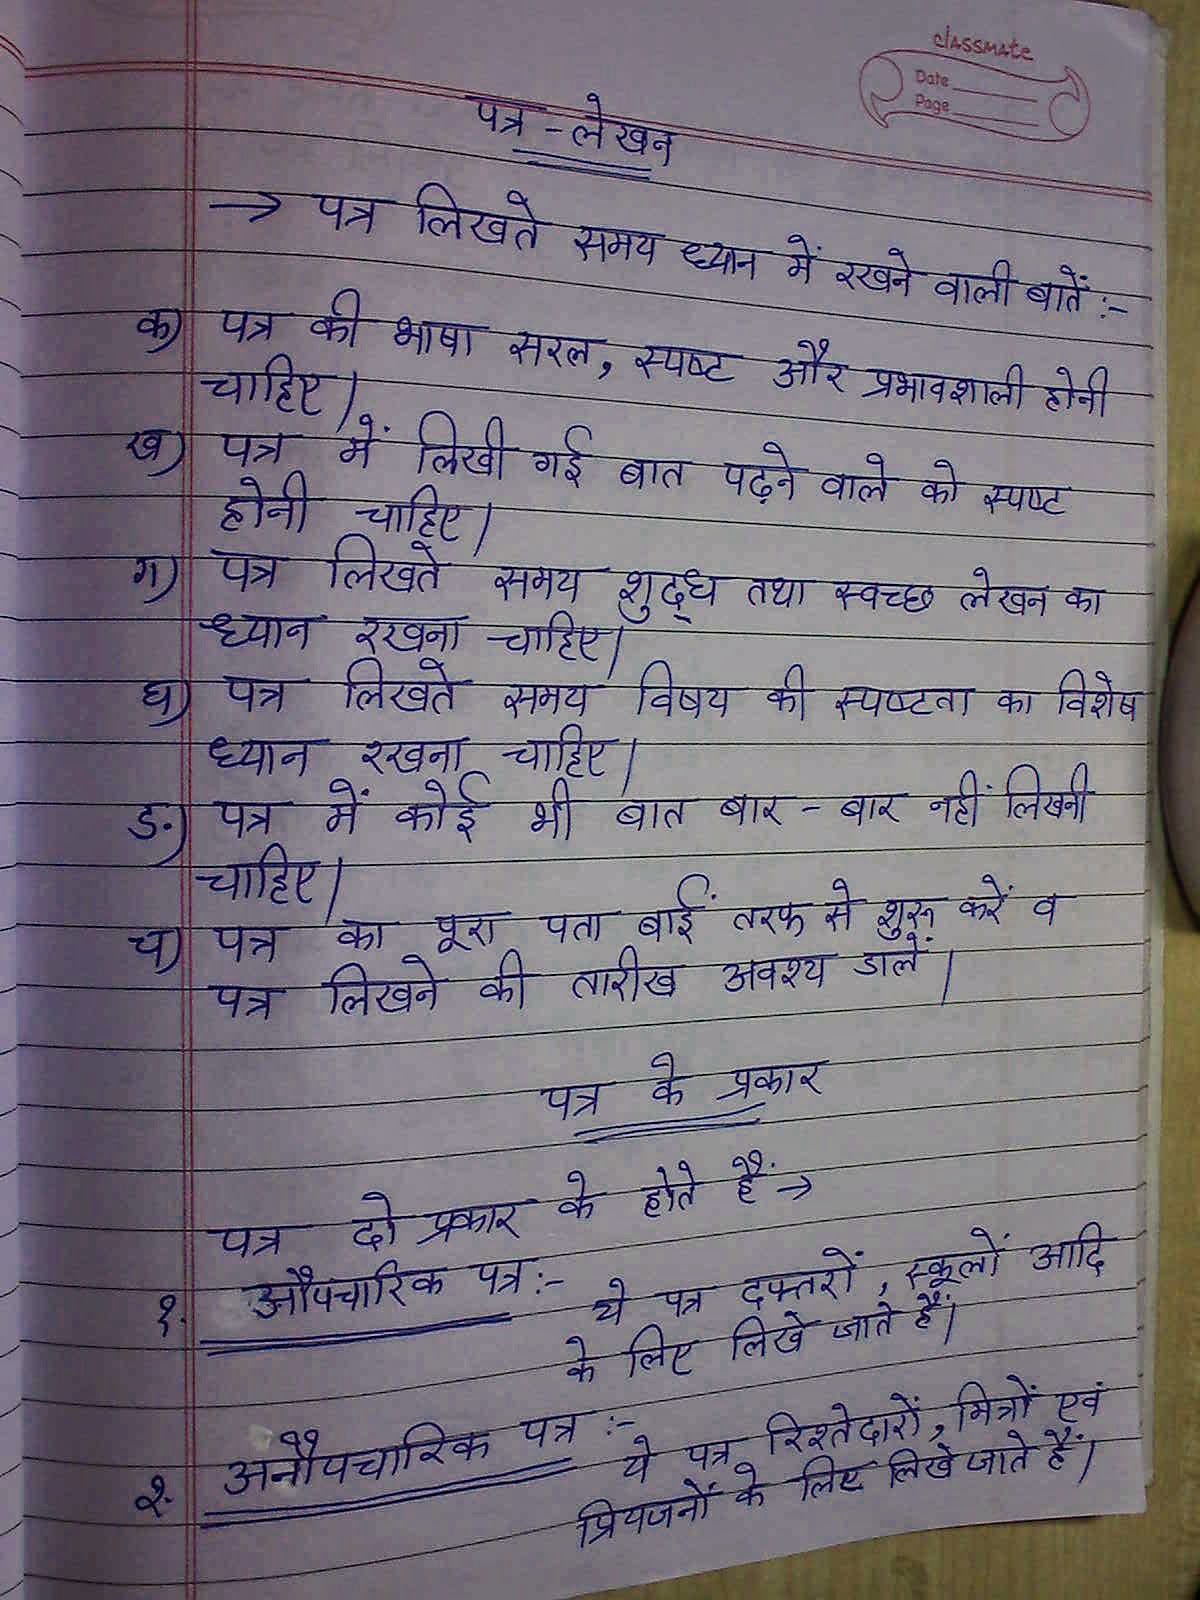 classmate
Date
Page
पत्र - लेखन
→ पत्र लिखते समय ध्यान में रखने वाली बातें :-
क) पत्र की भाषा सरल, स्पष्ट और प्रभावशाली होनी
चाहिए।
ख) पत्र में लिखी गई बात पढ़ने वाले को स्पष्ट
होनी चाहिए।
ग) पत्र लिखते समय शुद्ध तथा स्वच्छ लेखन का
ध्यान रखना चाहिए।
घ) पत्र लिखते समय विषय की स्पष्टता का विशेष
ध्यान रखना चाहिए।
ङ) पत्र में कोई भी बात बार - बार नहीं लिखनी
चाहिए।
च) पत्र का पूरा पता बाईं तरफ से शुरू करें व
पत्र लिखने की तारीख अवश्य डालें।
पत्र के प्रकार
पत्र दो प्रकार के होते हैं →
१. औपचारिक पत्र :- ये पत्र दफ्तरों, स्कूलों आदि
के लिए लिखे जाते हैं।
२. अनौपचारिक पत्र :- ये पत्र रिश्तेदारों, मित्रों एवं
प्रियजनों के लिए लिखे जाते हैं।